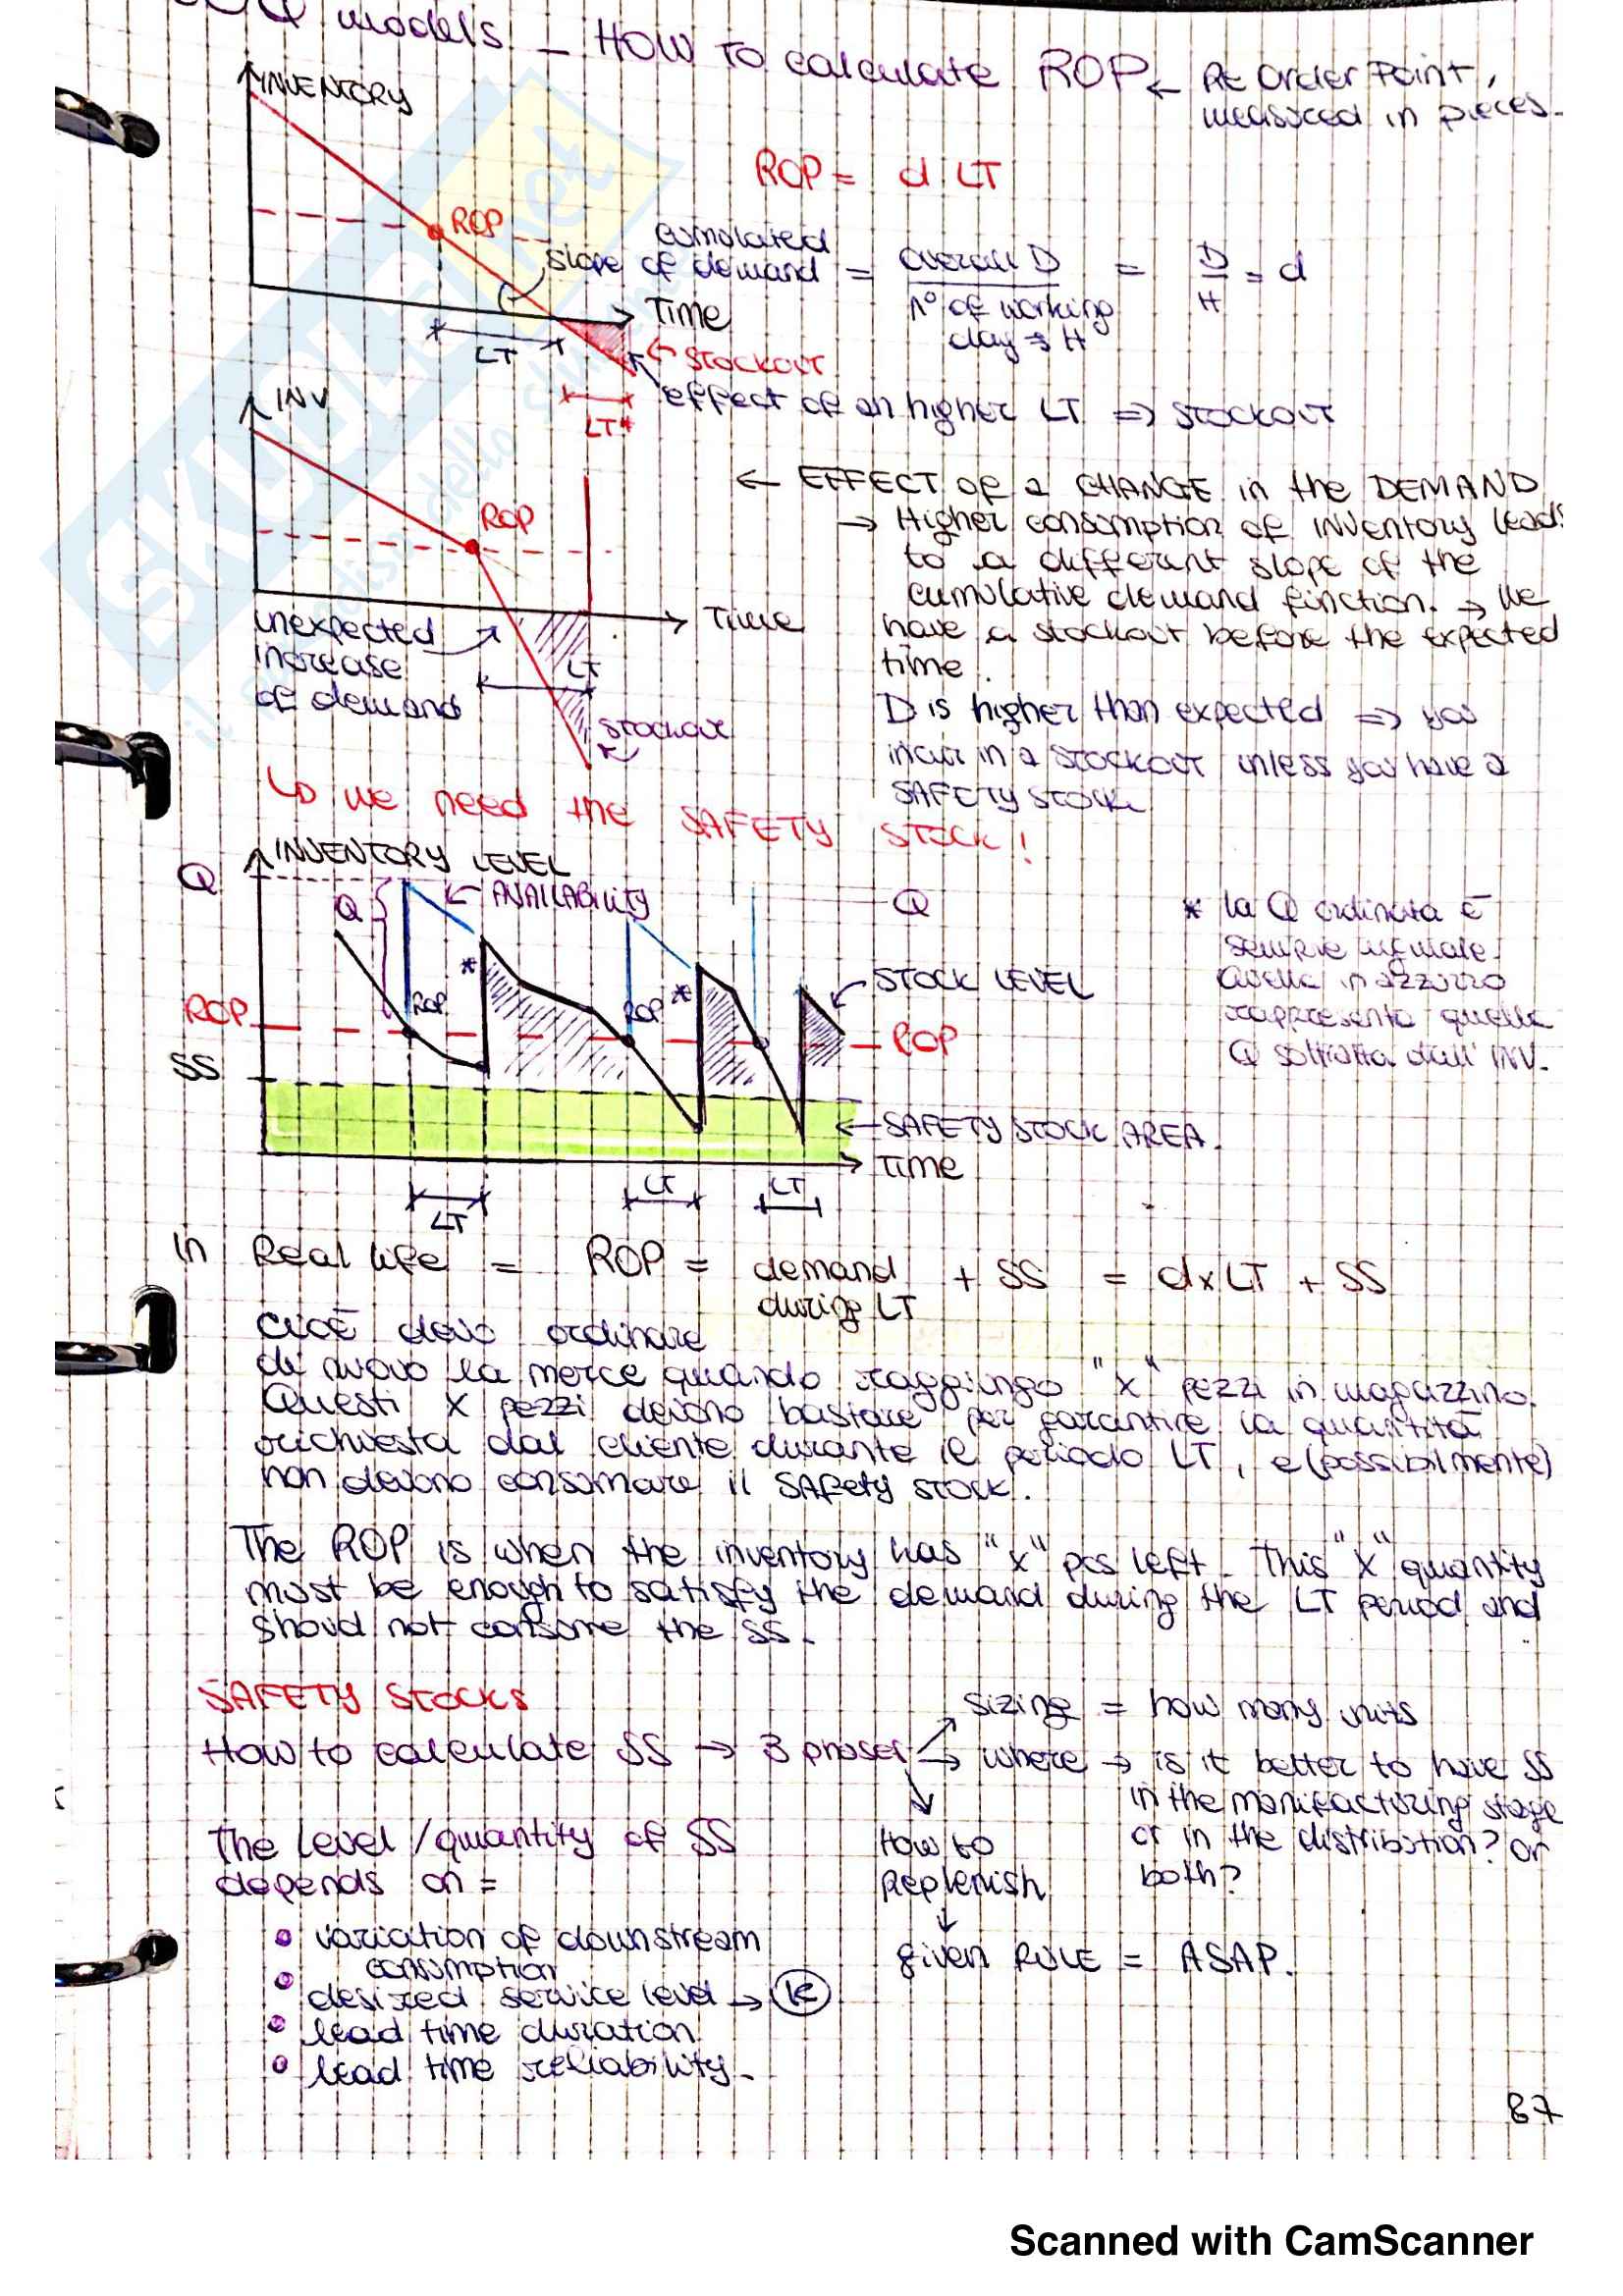 models - HOW TO calculate ROP ← Re Order Point,
measured in pieces.
INVENTORY
ROP = d LT
ROP
cumulated
slope of demand = overall D / n° of working day → H = D / H = d
Time
LT
← STOCKOUT
LT*
effect of an higher LT ⇒ STOCKOUT
INV
← EFFECT OF a CHANGE in the DEMAND
→ Higher consumption of INVENTORY leads
to a different slope of the
cumulative demand function. → We
have a stockout before the expected
time.
ROP
Time
unexpected
increase
of demand
LT
STOCKOUT
D is higher than expected ⇒ you
incur in a STOCKOUT unless you have a
SAFETY STOCK
↳ we need the SAFETY STOCK!
INVENTORY LEVEL
Q
Q
← AVAILABILITY
Q
* la Q ordinata è
sempre uguale.
Quella in azzurro
rappresenta quella
Q sottratta dall'INV.
*
*
STOCK LEVEL
ROP
ROP
ROP
ROP
SS
← SAFETY STOCK AREA.
Time
LT
LT
LT
In Real life = ROP = demand during LT + SS = d x LT + SS
cioè devo ordinare
di nuovo la merce quando raggiungo "x" pezzi in magazzino.
Questi x pezzi devono bastare per garantire la quantità
richiesta dal cliente durante il periodo LT, e (possibilmente)
non devono consumare il SAFETY STOCK.
The ROP is when the inventory has "x" pcs left. This "x" quantity
must be enough to satisfy the demand during the LT period and
shoud not consume the SS.
SAFETY STOCKS
How to calculate SS → 3 phases
sizing = how many units
where → is it better to have SS
in the manifacturing stage
or in the distribution? or
both?
How to
Replenish
↓
given RULE = ASAP.
The level/quantity of SS
depends on =
• variation of downstream
consumption
• desired service level → K
• lead time duration
• lead time reliability.
87
Scanned with CamScanner